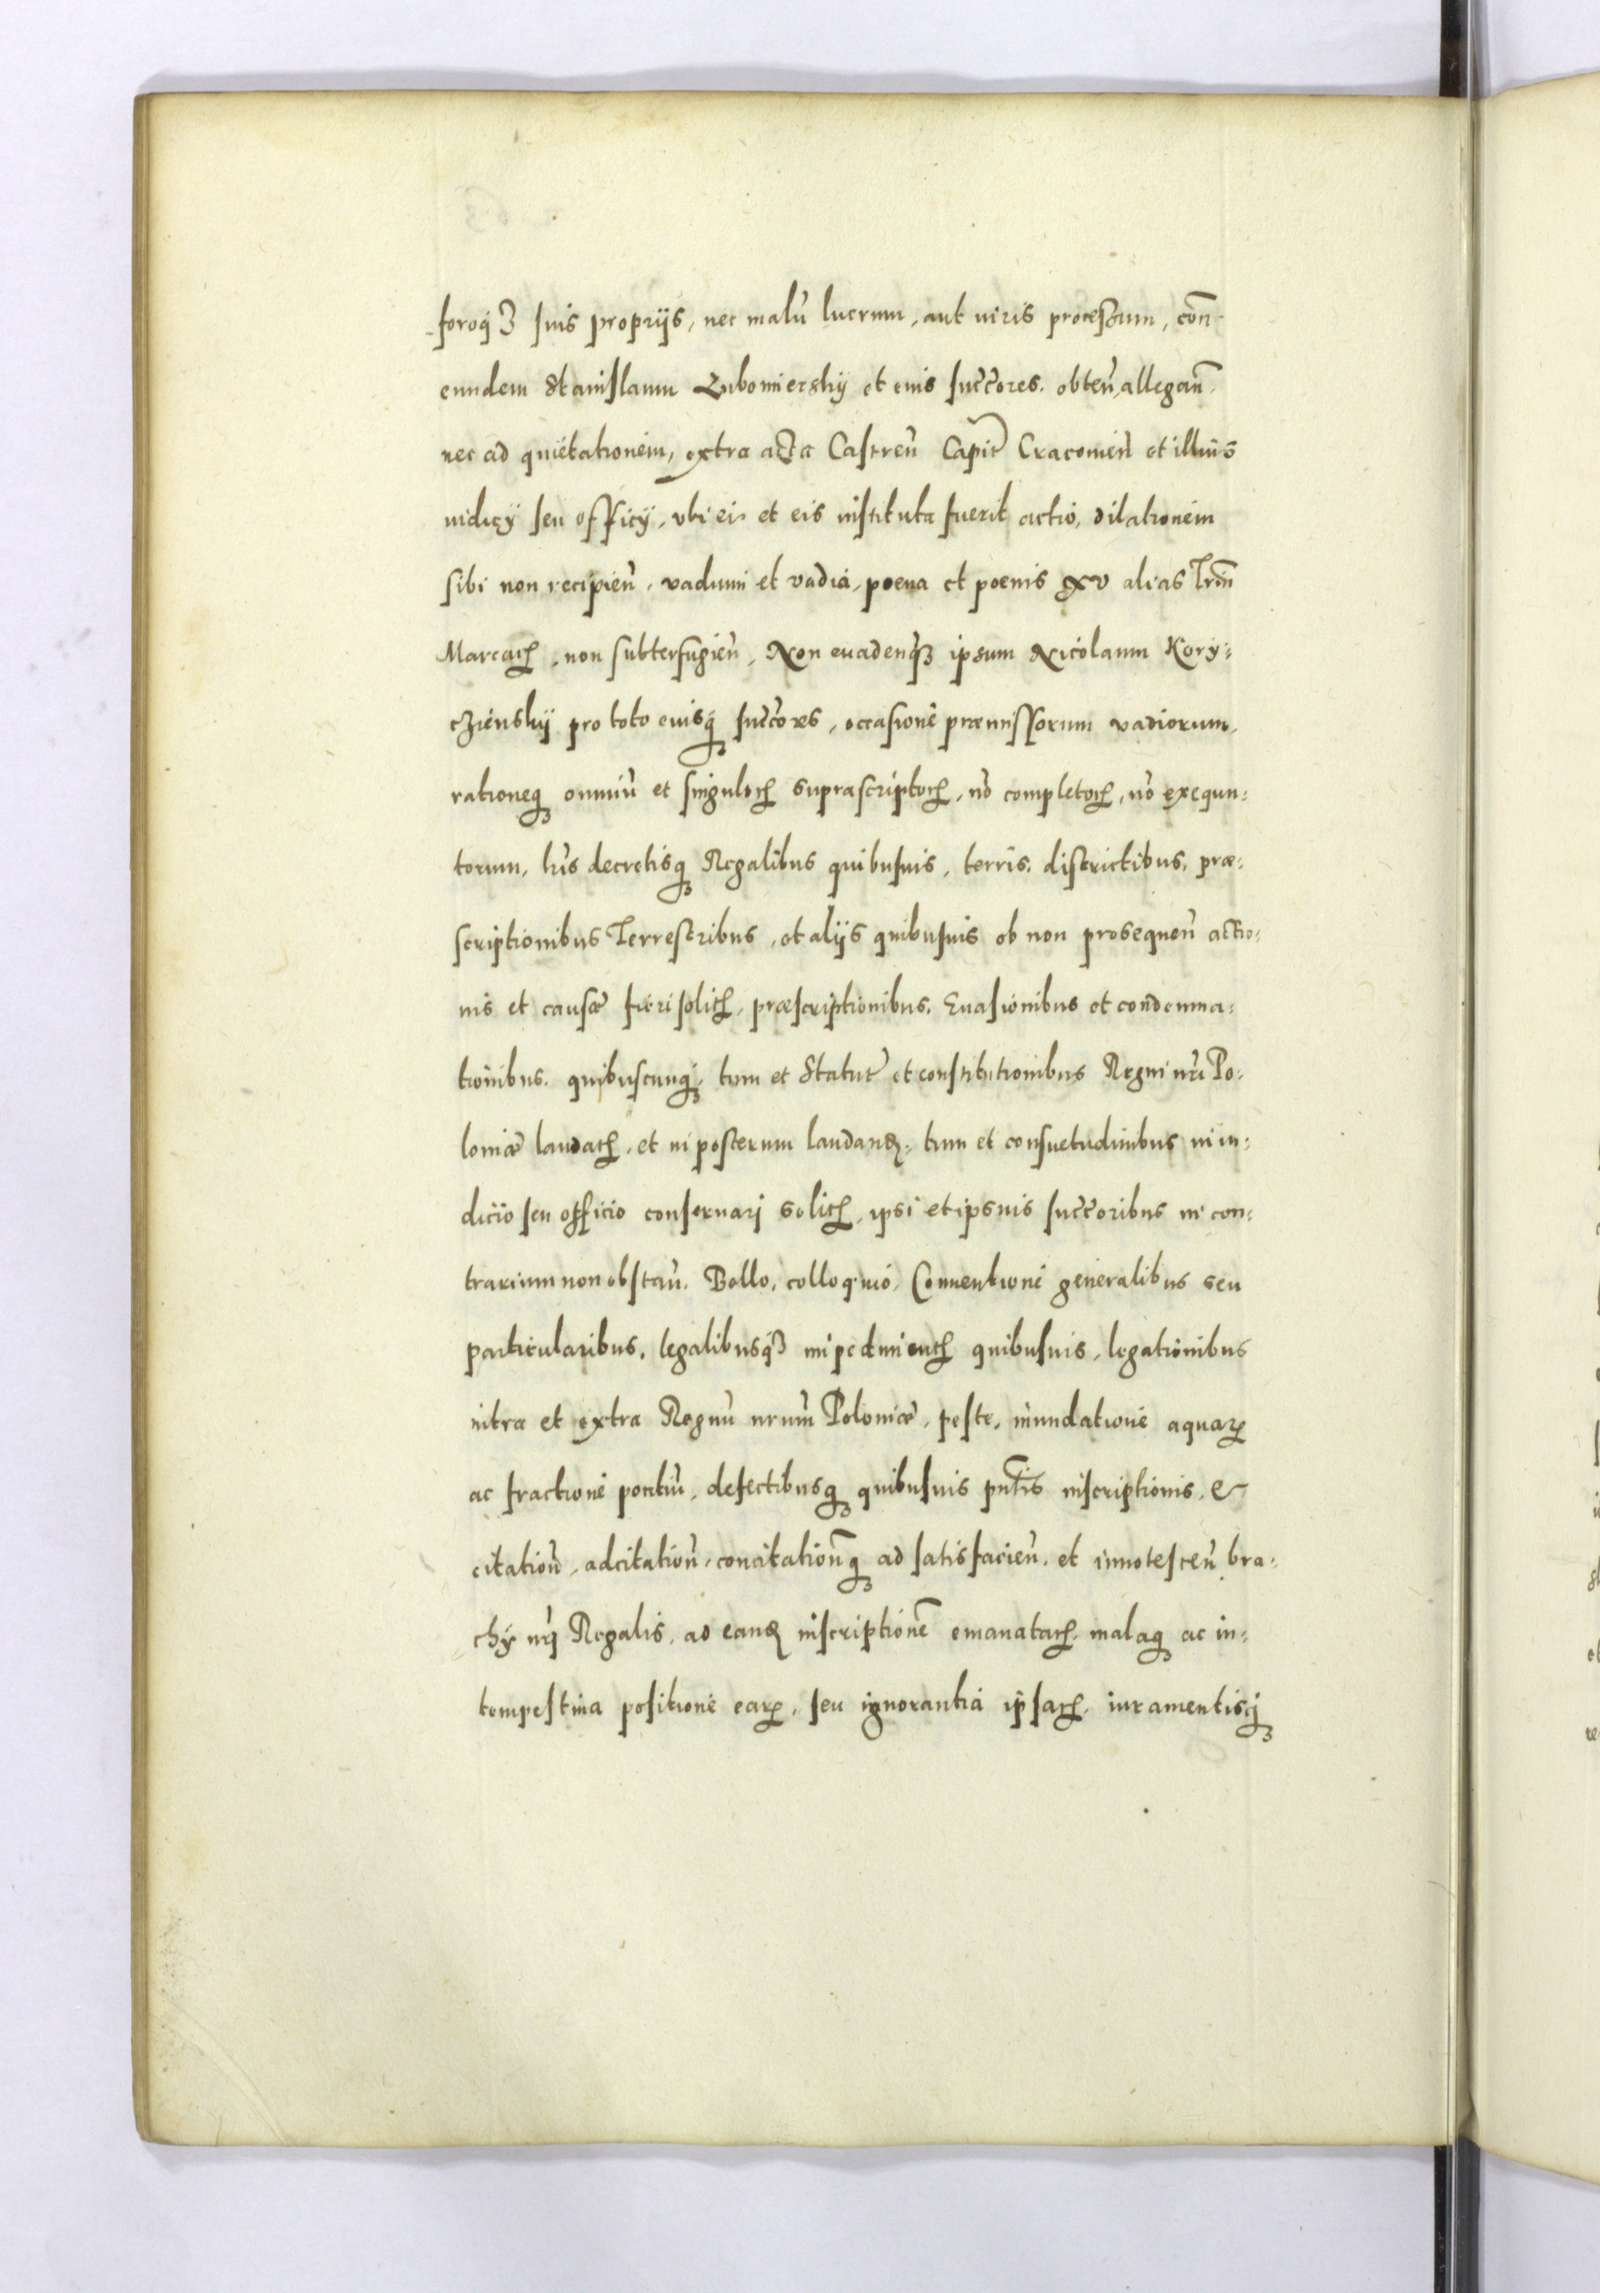 foroq3 suis proprijs, nec malū lucrum, aut iuris processum, cōn
eundem Stanislaum Lubomiersky et eius succōres. obteñ, allegañ.
nec ad quietationem, extra acta Castreñ Capit̃ Cracouieñ et illius
iudicy seu officy, vbi ei et eis instituta fuerit actio, dilationem
sibi non recipieñ, vadium et vadia, poena et poenis xv alias Triū
Marcarʒ, non subterfugieñ, Non euadenq̃3 ipsum Nicolaum Kory=
cziensky pro toto eiusq́ succōres, occasione præmissorum vadiorum,
rationeq́ omniū et singulorʒ suprascriptorʒ, nō completorʒ, nō exequu=
torum, hīs decretisq́ Regalibus quibusuis, terris, districtibus, præ=
scriptionibus Terrestribus, et alijs quibusuis ob non prosequeñ actio=
nis et causæ fieri solitʒ, præscriptionibus, Euasionibus et condemna=
tionibus, quibuscunq́, tum et Statut̃ et constitutionibus Regni nr̄i Po=
loniæ laudatʒ, et in posterum laudanʒ, tum et consuetudinibus in iu=
dicio seu officio conseruarj solitʒ, ipsi et ipsius succōribus in con=
trarium non obstañ. Bello, colloquio, Conuentione generalibus seu
particularibus, legalibusq3 impedimentʒ quibusuis, legationibus
intra et extra Regnū nrum̄ Poloniæ, peste, inundatione aquarʒ
ac fractione pontiū, defectibusq́ quibusuis pn̄tis inscriptionis, &
citatioñ, adcitatioñ, concitatioñq́ ad satisfacieñ, et innotesceñ bra=
chÿ nr̄i Regalis, ad eanʒ inscriptionē emanatarʒ, malaq́ ac in=
tempestiua positione earʒ, seu ignorantia ipsarʒ, iuramentisq́